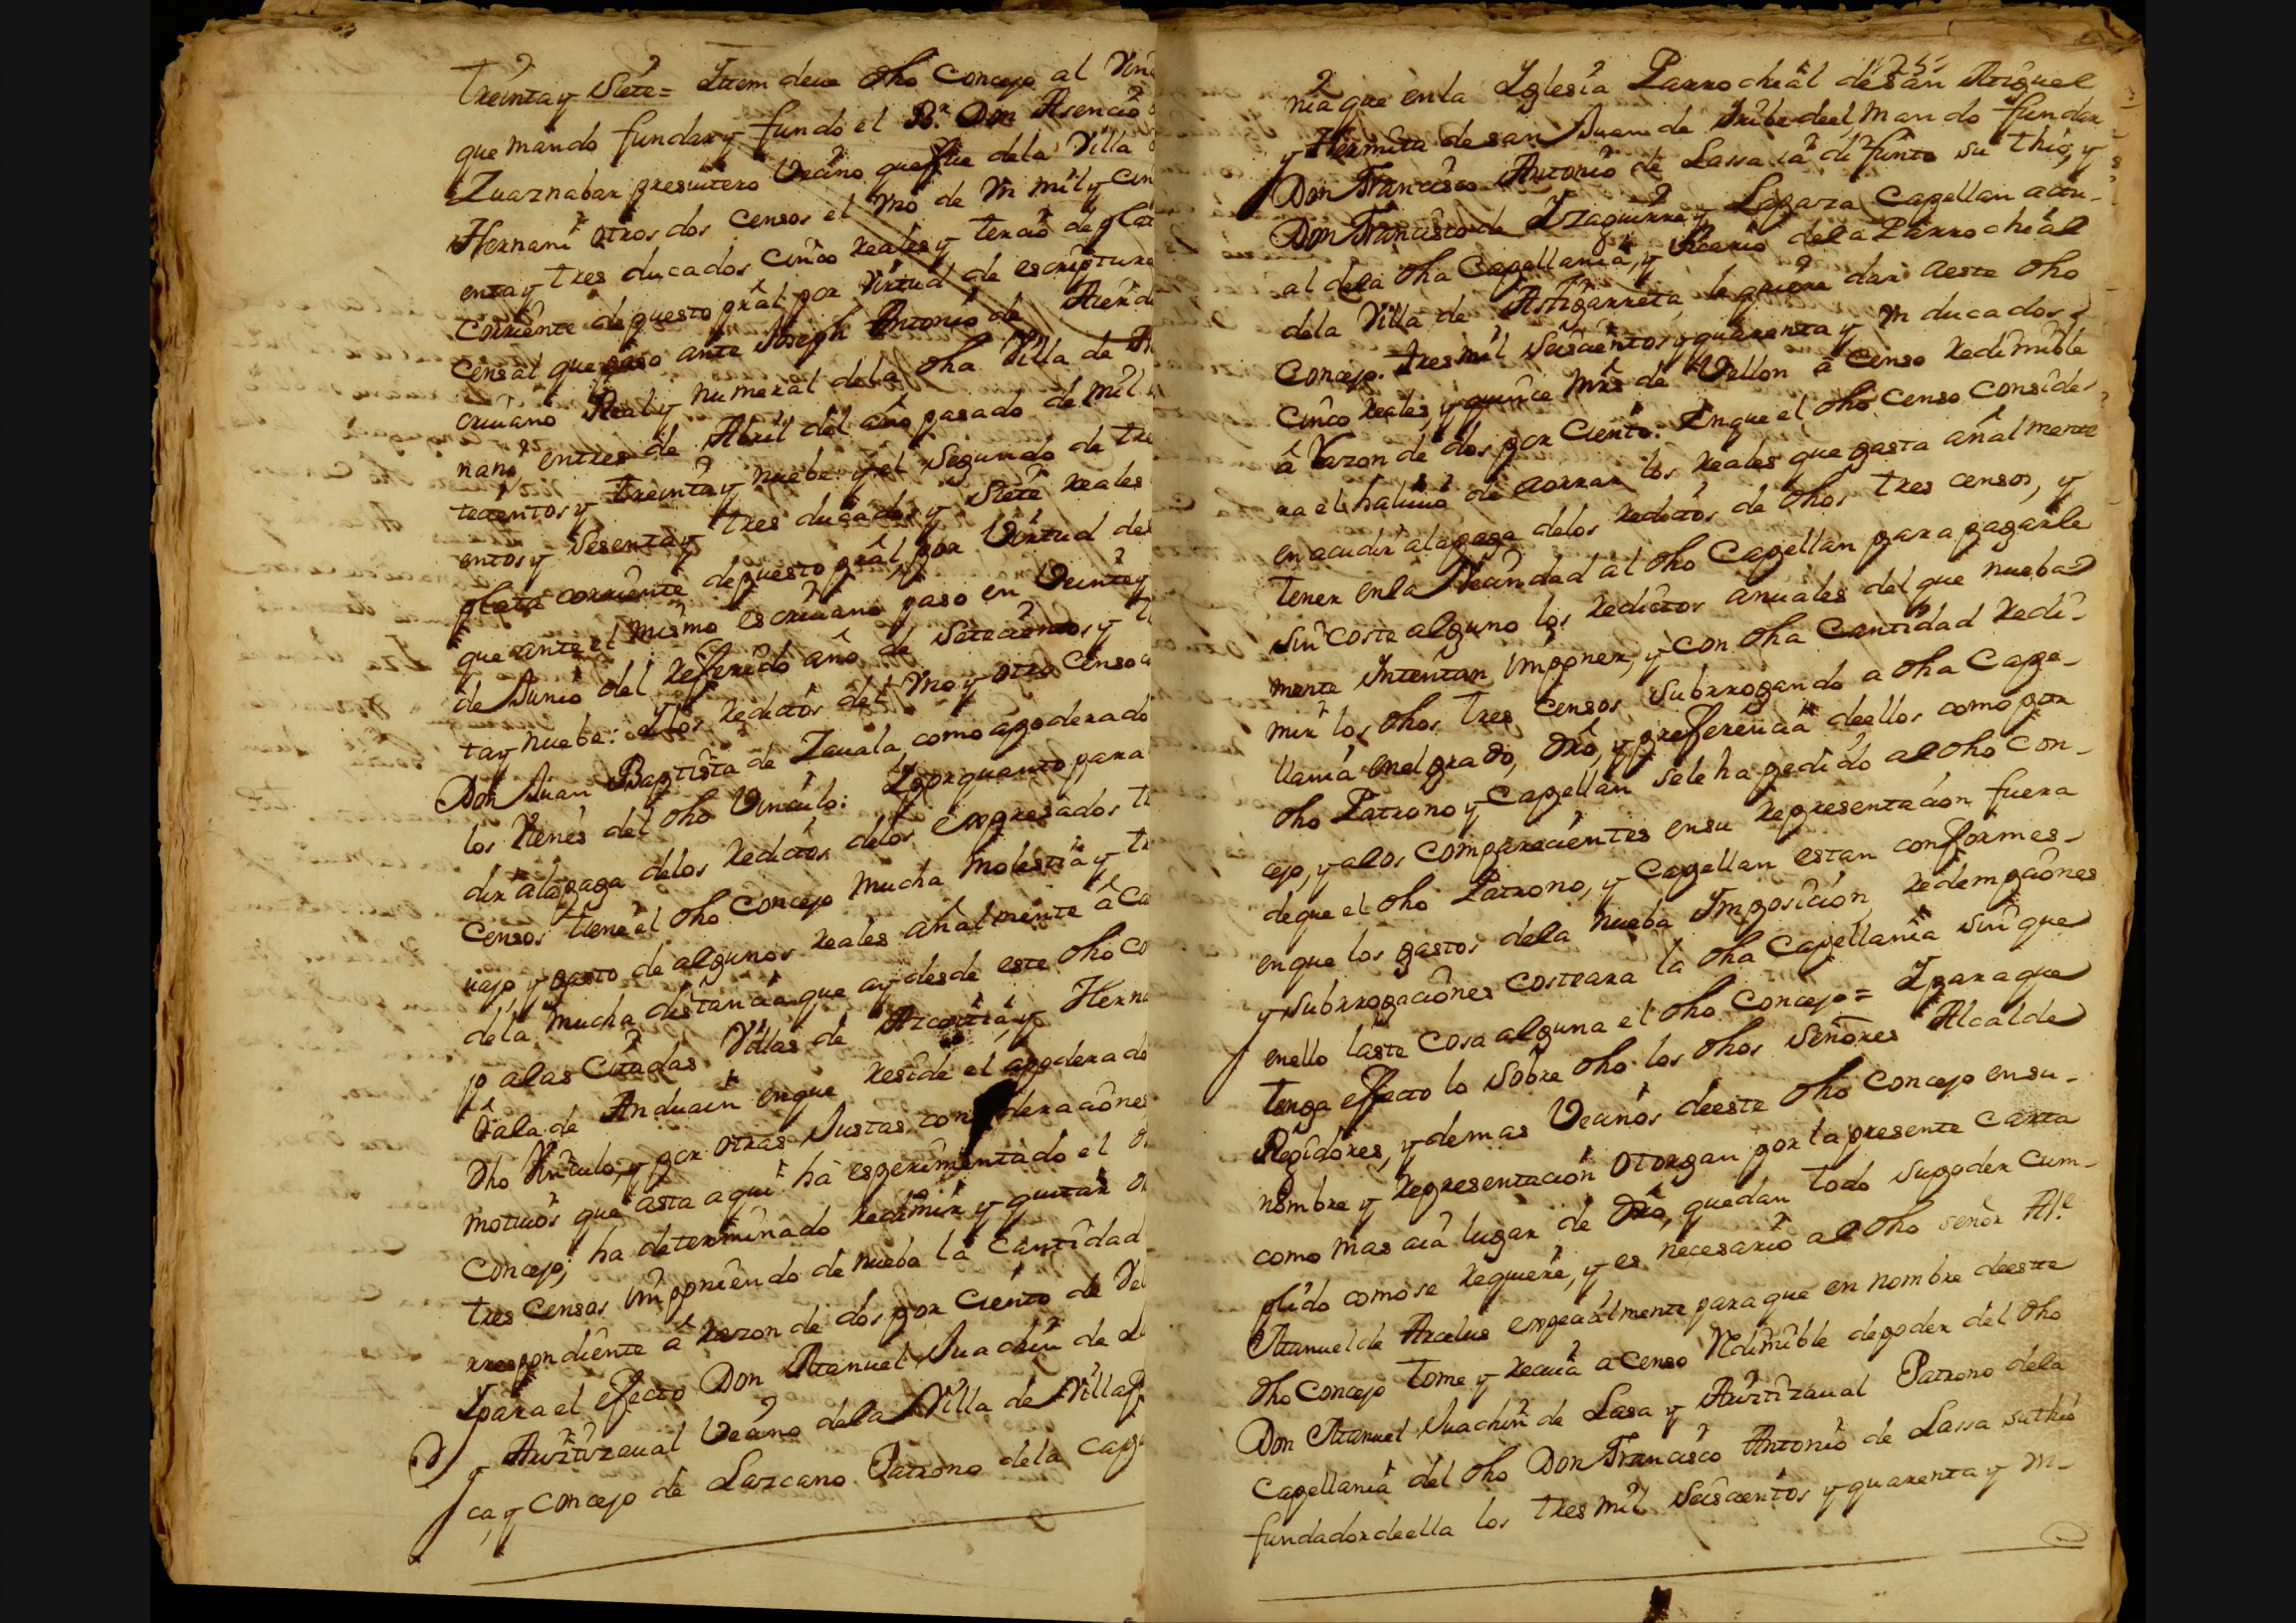 treinta y Siete = Ittem deve dho Concejo al Vin
que mando fundar y fundó el B.r Don Asencio
Zuaznabar presvitero Vecino que fue dela Villa
Hernani otros dos Censos el Vno de Vn mil y cin
enta y tres ducados cinco reales y tercio de plat
corriente depuesto pral por Virtud de escriptura
Censal que paso ante Joseph Antonio de
criuano Real y numeral dela dha Villa de
nani entres de Abril del año pasado de mil
tecientos y treinta y nuebe y el Segundo de tre
entos y Sesenta y tres ducados y Siete reales
plata corriente depuesto pral, por Virtud de
que ante el mismo escriuano paso en Veinte y
de Junio del referido año de Setecientos y t
ta y nuebe: y los redictos del Vno y otro Censo
Don Juan Baptista de Zauala como apoderado
los Vienes del dho Vinculo: Y por quanto para
dir ala paga delos redictos delos expresados t
Censos tiene el dho Concejo mucha molestia y t
uajo y gasto de algunos reales añalmente â ca
dela mucha distancia que ay desde este dho Co
jo alas Citadas Villas de Azcoitia, y Herna
ô ala de Anduain en que reside el apoderado
dho Vinculo, y por otras Justas consideraciones
motiuos que asta aqui ha esperimentado el
Concejo; ha determinado redimir y quitar
tres Censos imponiendo de nuebo la Cantidad
rrespondiente â razon de dos por Ciento de Vel
Y para el efecto Don Manuel Juachin de
y Aviztizaual Vecino dela Villa de Villafr
ca, y Concejo de Lazcano Patrono dela Cape
nia que en la Yglesia Parrochial de San Miguel
y Hermita de san Juan de Yribe de el mando fundar
Don Francisco Antonio de Lassa ia difunto su thio, y
Don Francisco de Yzaguirre y Laparza Capellan actu-
al dela dha Capellania, y Vicario dela Parrochial
dela Villa de Astigarreta, le quiere dar aeste dho
Concejo. tres mil Seiscientos y quarenta y Vn ducados
Cinco reales, y quince mrs de Vellon â Censo redimible
â razon de dos por Ciento. En que el dho Censo conside-
ra el haliuio de aorrar los reales que gasta añalmente
en acudir ala paga delos redictos de dhos tres censos, y
tener en la Vecindad al dho Capellan para pagarle
sin coste alguno los redictos anuales del que nueba
mente Intentan imponer, y con dha Cantidad redi-
mir los dhos tres Censos Subrrogando a dha Cape-
llania en el grado, dro, y preferencia deellos como por
dho Patrono y Capellan sele ha pedido al dho Con-
cejo, y alos comparecientes ensu representacion fuera
de que el dho Patrono, y Capellan estan conformes-
en que los gastos dela nueba Ymposicion, redempciones
y subrrogaciones costeara la dha Capellania sin que
en ello laste cosa alguna el dho Concejo = Y para que
tenga effecto lo Sobre dho los dhos Señores Alcalde
Regidores, y demas Vecinos deeste dho Concejo en su-
nombre y representacion otorgan por la presente Carta
como mas aia lugar de dro, que dan todo su poder Cum-
plido como se requiere, y es necesario al dho señor Al.e
Manuel de Arcelus especialmente para que en nombre deeste
dho Concejo tome y reciua a Censo redimible de poder del dho
Don Manuel Juachin de Lasa y Aviztizaual Patrono dela
Capellania del dho Don Francisco Antonio de Lassa su thio
fundador de ella los tres mil Seiscientos y quarenta y Vn-